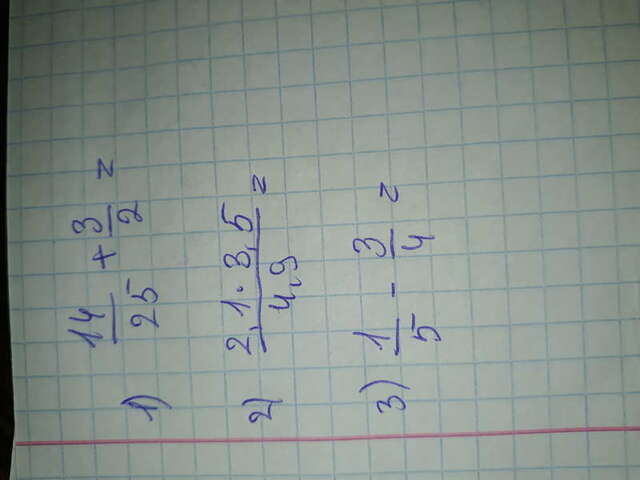 1) 14/25 + 3/2 =
2) 2,1 · 3,5 / 4,9 =
3) 1/5 - 3/4 =